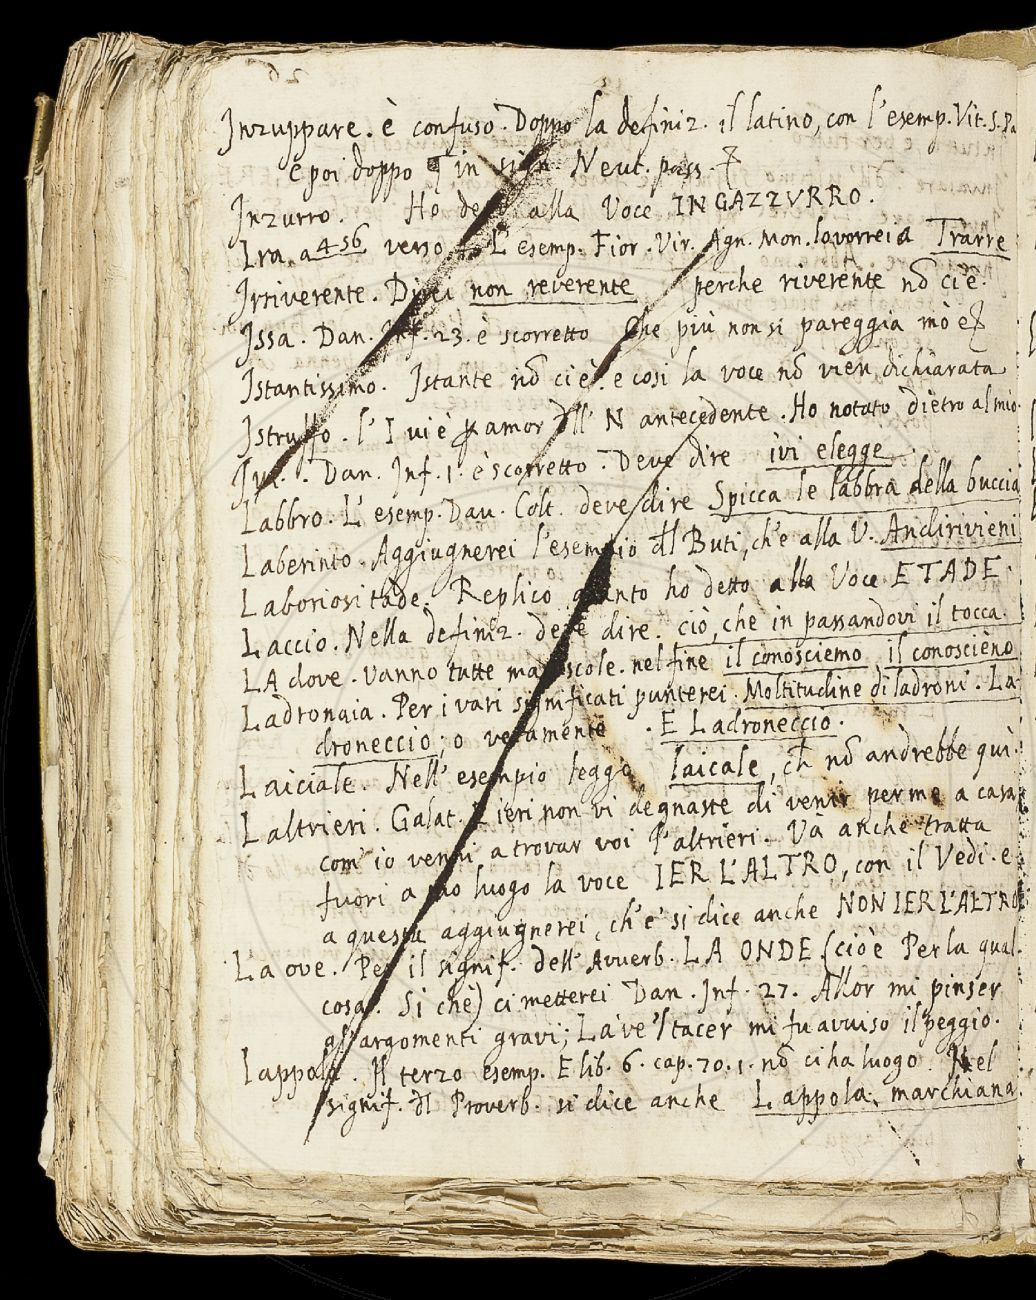 Inzuppare. è confuso. Doppo la definiz. il latino, con l'esemp. Vit. S. Pa
e poi doppo in sign. Neut. pass.
Inzurro. Ho detto alla Voce INGAZZVRRO.
Ira. a 456 verso L'esemp. Fior. Vir. Agn. Mon. lavorreia Trarre
Irriverente. Direi non reverente perche riverente nō ci è.
Issa. Dan. Inf. 23. è scorretto Che più non si pareggia mò e
Istantissimo. Istante nō ci è. e così la voce nō vien dichiarata
Istrutto. l' I vi è amor dll' N antecedente. Ho notato dietro al mio
Ivi. Dan. Inf. 1. è scorretto. Deve dire ivi elegge.
Labbro. L' esemp. Dav. Colt. deve dire Spicca le labbra della buccia
Laberinto. Aggiugnerei l'esempio dl Buti, ch'e alla V. Andirivieni
Laboriositade. Replico quanto ho detto alla Voce ETADE.
Laccio. Nella definiz. deve dire. ciò, che in passandovi il tocca.
LA dove. Vanno tutte maiuscole. nel fine il conosciemo il conoscièno
Ladronaia. Per i vari significati punterei. Moltitudine di ladroni. La-
droneccio; o veramente . E Ladroneccio.
Laiciale. Nell' esempio leggo laicale, ch nō andrebbe quì.
Laltrieri. Galat. E ieri non vi degnaste di venir per me a casa,
com' io venni a trovar voi l'altrieri. Và anche tratta
fuori a suo luogo la voce IER L'ALTRO, con il Vedi. e
a questa aggiugnerei, ch'e' si dice anche NON IER L'ALTRO
La ove. Per il signif. dell' Avverb. LA ONDE (cioè Per la qual
cosa. Si chè) ci metterei Dan. Inf. 27. Allor mi pinser
gl' argomenti gravi; La've'l tacer mi fu avviso il peggio.
Lappola. Il terzo esemp. E lib. 6. cap. 70. 1. nō ci ha luogo. Nel
signif. dl Proverb. si dice anche Lappola marchiana.